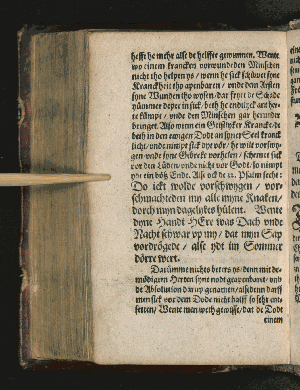 hefft he mehr alse de helffte gewunnen. Wente
wo einem krancken vorwundeden Minschen
nicht tho helpen ys / wenn he sick schüwet syne
Kranckheit tho apenbaren / unde dem Arsten
syne Wunden tho wysen / dar frett de Schade
yümmer deper in sick / beth he endtlyck ant her-
te kümpt / unde den Minschen gar herunder
bringet. Also wenn ein Geistlyker Krancke / de
beth in den ewigen Dodt an syner Seel kranck
licht / unde nimpt sick vör / he wil vorswy-
gen unde syne Gebreke vorhelen / schemet sick
vor den Lüden / unde nicht vor Godt / so nimpt
ydt ein böß Ende. Alse ock de 32. Psalm secht:
Do ickt wolde vorschwygen / vor-
schmachteden my alle myne Knaken /
dorch myn dagelykes hülent. Wente
dyne Handt HERR was Dach unde
Nacht schwar up my / dat myn Sap
vordrögede / alse ydt im Sommer
dörre wert.
Darümme nichts beters ys / denn mit de-
mödigem Herten syne nodt geapenbaret / unde
de Absolution darup genamen / alsdenn darff
men sick vor dem Dode nicht halff so sehr ent-
setten / Wente men weth gewisse / dat de Dodt
einem